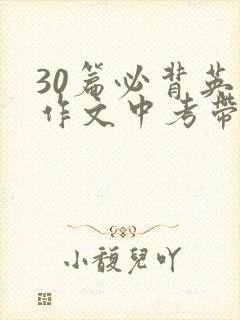 30篇必背英
作文中考带
小馥儿吖